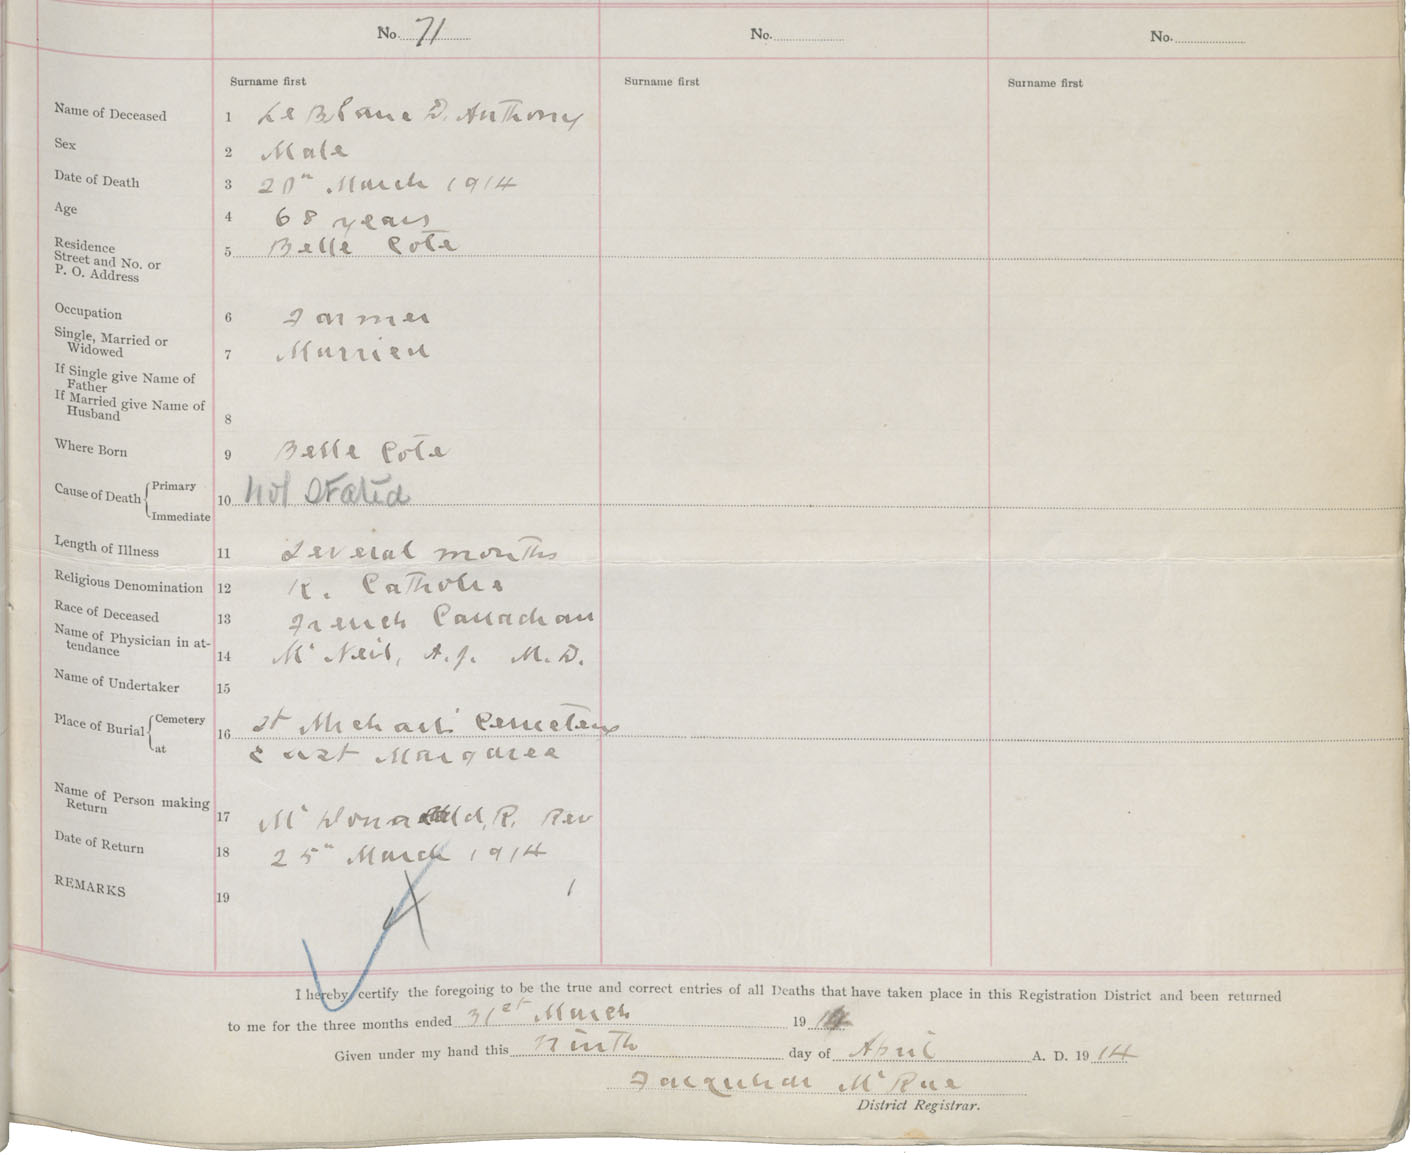 No. 71
No.
No.
Surname first
Surname first
Surname first
Name of Deceased 1 Le Blanc D. Anthony
Sex 2 Male
Date of Death 3 20th March 1914
Age 4 68 years
Residence
Street and No. or
P. O. Address 5 Belle Cote
Occupation 6 Farmer
Single, Married or
Widowed 7 Married
If Single give Name of
Father
If Married give Name of
Husband 8
Where Born 9 Belle Cote
Cause of Death Primary
Immediate 10 Not Stated
Length of Illness 11 Several months
Religious Denomination 12 R. Catholic
Race of Deceased 13 French Canadian
Name of Physician in at-
tendance 14 Mc Neil, A. J. M. D.
Name of Undertaker 15
Place of Burial Cemetery
at 16 St Michael's Cemetery
East Margaree
Name of Person making
Return 17 Mc Donald, R. Rev
Date of Return 18 25th March 1914
REMARKS 19
I hereby certify the foregoing to be the true and correct entries of all Deaths that have taken place in this Registration District and been returned
to me for the three months ended 31st March 1914
Given under my hand this Ninth day of April A. D. 1914
Farquhar Mc Rae
District Registrar.